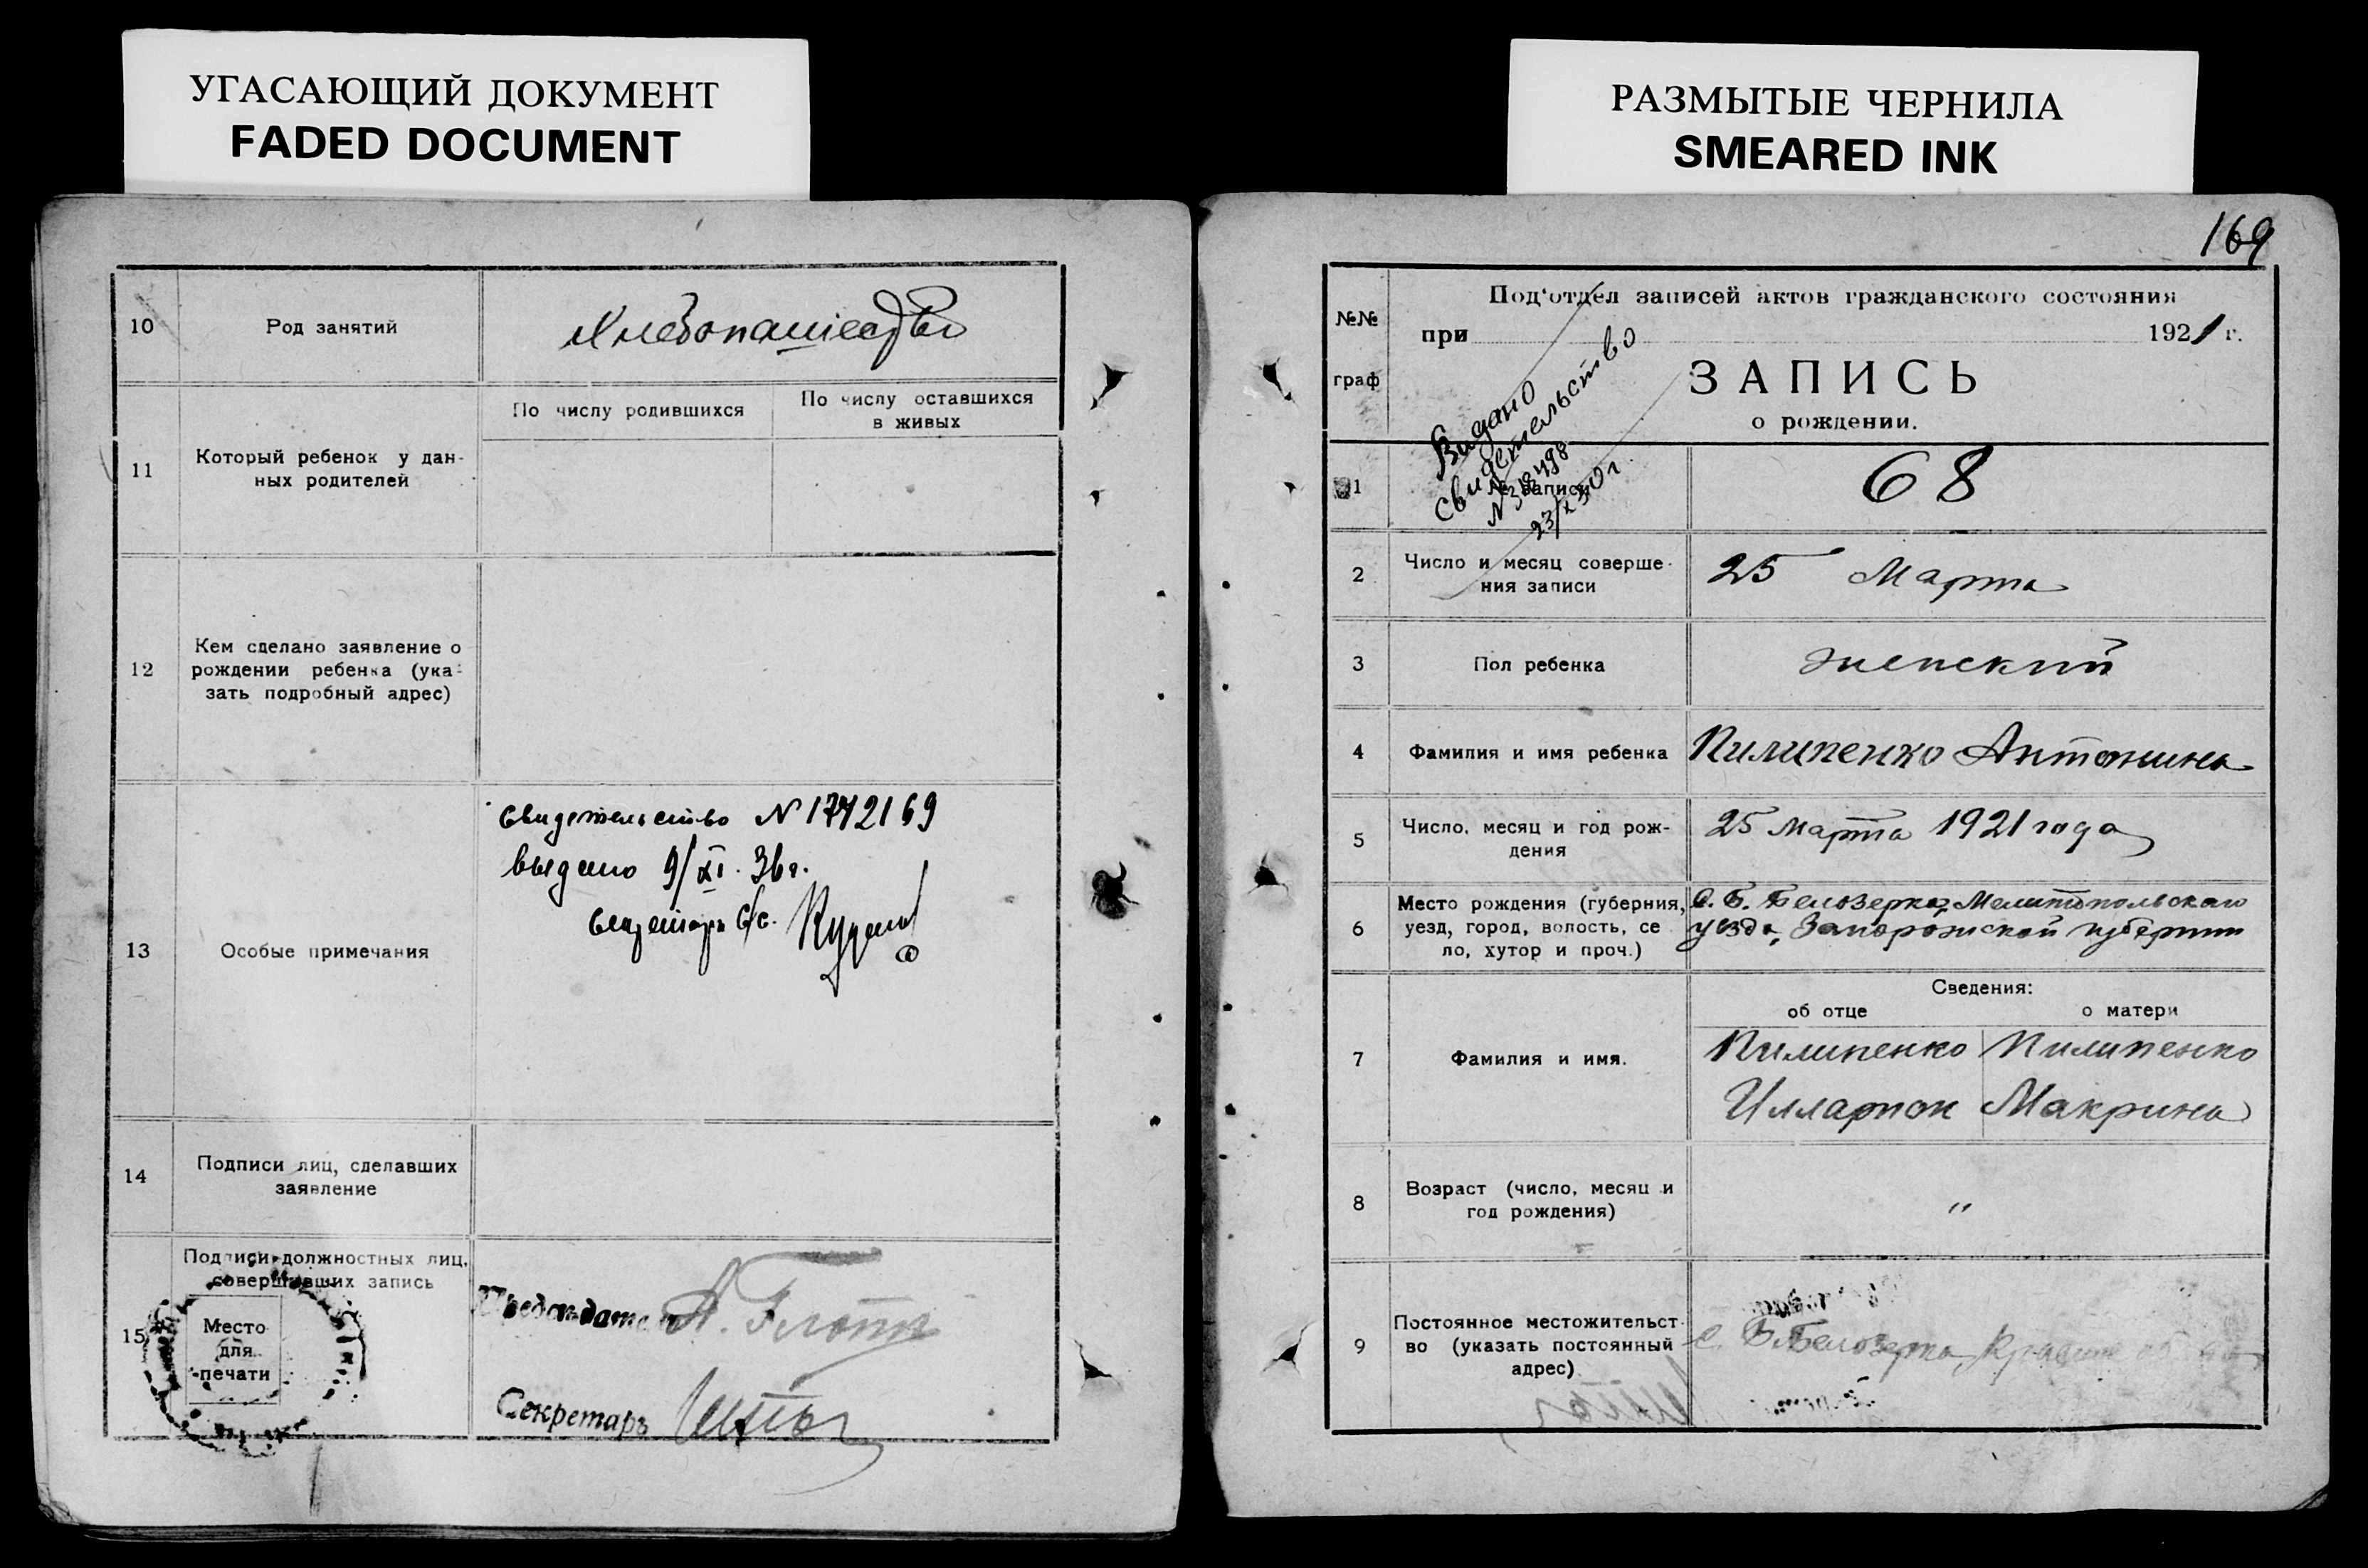 УГАСАЮЩИЙ ДОКУМЕНТ
FADED DOCUMENT
10
Род занятий
11
Который ребенок у дан-
ных родителей
По числу родившихся
По числу оставшихся
в живых
12
Кем сделано заявление о
рождении ребенка (ука-
зать подробный адрес)
13
Особые примечания
свидетельство N 1742169
выдано 9/XI. 36г.
секретарь с/с.
14
Подписи лиц, сделавших
заявление
15
Подписи должностных лиц,
совершивших запись
Место
для
печати
Председатель А.
Секретарь
РАЗМЫТЫЕ ЧЕРНИЛА
SMEARED INK
169
№№
граф
Под'отдел записей актов гражданского состояния
при 1921 г.
ЗАПИСЬ
о рождении.
Видано
свидетельство
23/X 50 г.
1
№ записи
68
2
Число и месяц соверше-
ния записи
25 Марта
3
Пол ребенка
женский
4
Фамилия и имя ребенка
Пилипенко Антонина
5
Число, месяц и год рож-
дения
25 Марта 1921 года
6
Место рождения (губерния,
уезд, город, волость, се
ло, хутор и проч.)
с. Б. Белозерка, Мелитопольскаго
уезда, Запорожской губернии
Сведения:
об отце
о матери
7
Фамилия и имя.
Пилипенко
Илларион
Пилипенко
Макрина
8
Возраст (число, месяц и
год рождения)
"
9
Постоянное местожительст-
во (указать постоянный
адрес)
с. Б. Белозерка